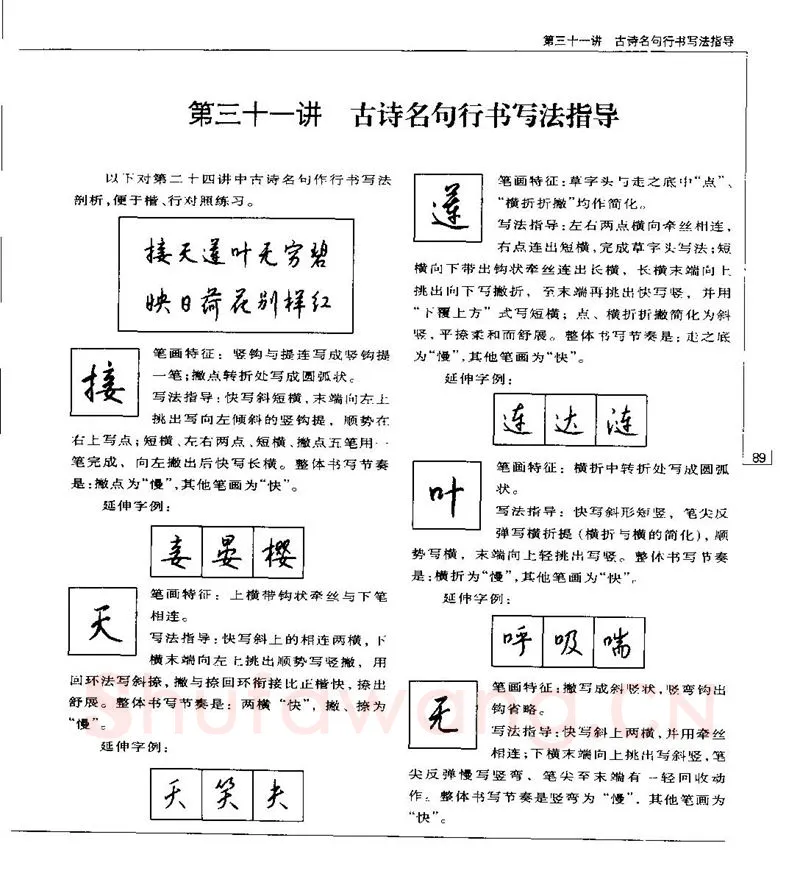 第三十一讲 古诗名句行书写法指导
第三十一讲 古诗名句行书写法指导
以下对第二十四讲中古诗名句作行书写法
剖析,便于楷、行对照练习。
接天莲叶无穷碧
映日荷花别样红
接
笔画特征：竖钩与提连写成竖钩提
一笔;撇点转折处写成圆弧状。
写法指导:快写斜短横,末端向左上
挑出写向左倾斜的竖钩提，顺势在
右上写点;短横、左右两点、短横、撇点五笔用一
笔完成，向左撇出后快写长横。整体书写节奏
是:撇点为“慢”,其他笔画为“快”。
延伸字例:
妾 晏 樱
天
笔画特征：上横带钩状牵丝与下笔
相连。
写法指导:快写斜上的相连两横,下
横末端向左上挑出顺势写竖撇，用
回环法写斜捺,撇与捺回环衔接比正楷快,捺出
舒展。整体书写节奏是：两横“快”，撇、捺为
“慢”。
延伸字例:
夭 笑 夫
莲
笔画特征:草字头与走之底中“点”、
“横折折撇”均作简化。
写法指导:左右两点横向牵丝相连,
右点连出短横,完成草字头写法;短
横向下带出钩状牵丝连出长横，长横末端向上
挑出向下写撇折，至末端再挑出快写竖，并用
“下覆上方”式写短横；点、横折折撇简化为斜
竖,平捺柔和而舒展。整体书写节奏是：走之底
为“慢”,其他笔画为“快”。
延伸字例:
连 达 涟
89
叶
笔画特征：横折中转折处写成圆弧
状。
写法指导：快写斜形短竖，笔尖反
弹写横折提(横折与横的简化),顺
势写横，末端向上轻挑出写竖。整体书写节奏
是:横折为“慢”,其他笔画为“快”。
延伸字例：
呼 吸 喘
无
笔画特征:撇写成斜竖状,竖弯钩出
钩省略。
写法指导:快写斜上两横,并用牵丝
相连;下横末端向上挑出写斜竖,笔
尖反弹慢写竖弯，笔尖至末端有一轻回收动
作。整体书写节奏是竖弯为“慢”，其他笔画为
“快”。
Shufawang.CN